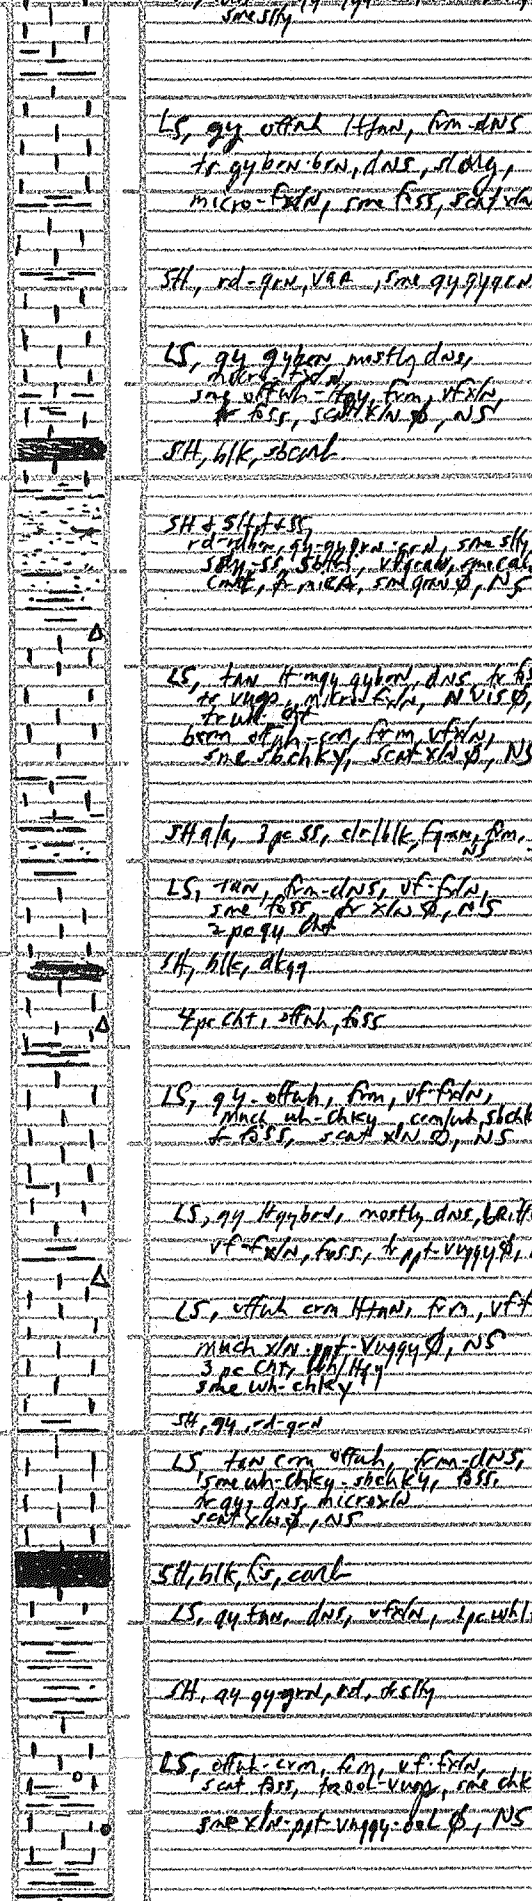 sme slty
LS, gy offwh ltTAN, frm-dNS
tr gybrn-brn, dns,
micro-fxlN, sme foss, scat xlN
SH, rd-grN, sme gy gygrN
LS, gy gybrn mostly dns,
micro-fxlN
sme offwh-ltgy, frm, vfxlN,
tr foss, scat xlN Ø, NS
SH, blk, sbcarb
SH & Sltst & SS,
sme slty
tr mica, sme grn Ø, NS
LS, tAN lt-mgy gybrn, dns, tr
tr vugs, micro-fxlN, N VIS Ø,
tr wh cht
offwh-crm, frm, vfxlN,
sme sbchky, scat xlN Ø, NS
SH a/a, 3 pc SS, clr/blk, fgrn, frm,
NS
LS, TAN, frm-dNS, vf-fxlN,
sme foss, tr xlN Ø, NS
2 pc gy Cht
SH, blk, dkgy
4 pc Cht, offwh, foss
LS, gy-offwh, frm, vf-fxlN,
much wh-chky
tr foss, scat xlN Ø, NS
LS, gy ltgybrn, mostly dns,
vf-fxlN, foss, tr ppt-vuggy Ø,
LS, offwh crm ltTAN, frm,
much xlN-ppt-vuggy Ø, NS
3 pc Cht, wh/ltgy
sme wh-chky
SH, gy, rd-grN
LS tAN crm offwh, frm-dNS,
sme wh-chky-sbchky, foss,
tr gy, dNS, microxlN
scat xlN Ø, NS
SH, blk, fis, carb
LS, gy tAN, dNS, vfxlN, 1pc wh
SH, gy gy-grN, rd, slty
LS, offwh-crm, frm, vf-fxlN,
scat foss, sme chk
sme xlN-ppt-vuggy-ool Ø, NS